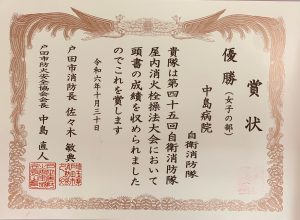 賞状
優勝（女子の部）
中島病院
自衛消防隊
貴隊は第四十五回自衛消防隊
屋内消火栓操法大会において
頭書の成績を収められました
のでこれを賞します
令和六年十月三十日
戸田市消防長 佐々木 敏典
戸田市防火安全協会会長 中島 直人